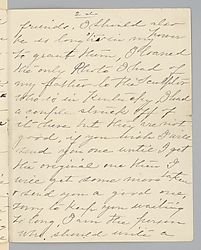 2d
friends, I should also
be so low "even my power
to grant them. I loaned
the only Photo I had of
my father to the Sculptor
who is in Kentucky I had
a couple struck off of
it there but they are not
good if you wish I will
send you one until I get
the original one then I
will get some more taken
& send you a good one,
sorry to keep you waiting
so long I am the person
who should write a